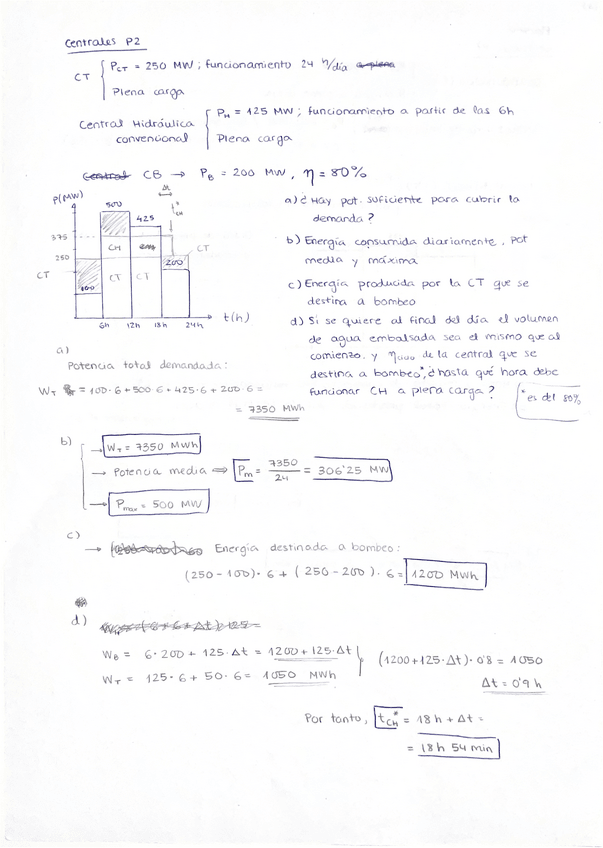 Centrales P2
CT { P_CT = 250 MW ; funcionamiento 24 h/día
Plena carga
Central Hidráulica convencional { P_H = 125 MW ; funcionamiento a partir de las 6h
Plena carga
CB → P_B = 200 MW, η = 80%
P(MW)
500
Δt
t*CH
425
375
CH
250
CT
200
CT
CT
CT
100
6h 12h 18h 24h t(h)
a) ¿Hay pot. suficiente para cubrir la
demanda?
b) Energía consumida diariamente, pot
media y máxima
c) Energía producida por la CT que se
destina a bombeo
d) Si se quiere al final del día el volumen
de agua embalsada sea el mismo que al
comienzo. y de la central que se
destina a bombeo*, ¿hasta qué hora debe
funcionar CH a plena carga?
*es del 80%
a)
Potencia total demandada:
W_T = 100·6 + 500·6 + 425·6 + 200·6 =
= 7350 MWh
b)
→ W_T = 7350 MWh
→ Potencia media ⇒ P_m = 7350/24 = 306'25 MW
→ P_max = 500 MW
c)
→ Energía destinada a bombeo:
(250 - 100)·6 + (250 - 200)·6 = 1200 MWh
d)
W_B = 6·200 + 125·Δt = 1200 + 125·Δt
W_T = 125·6 + 50·6 = 1050 MWh
(1200 + 125·Δt)·0'8 = 1050
Δt = 0'9 h
Por tanto, t*CH = 18h + Δt =
= 18h 54 min